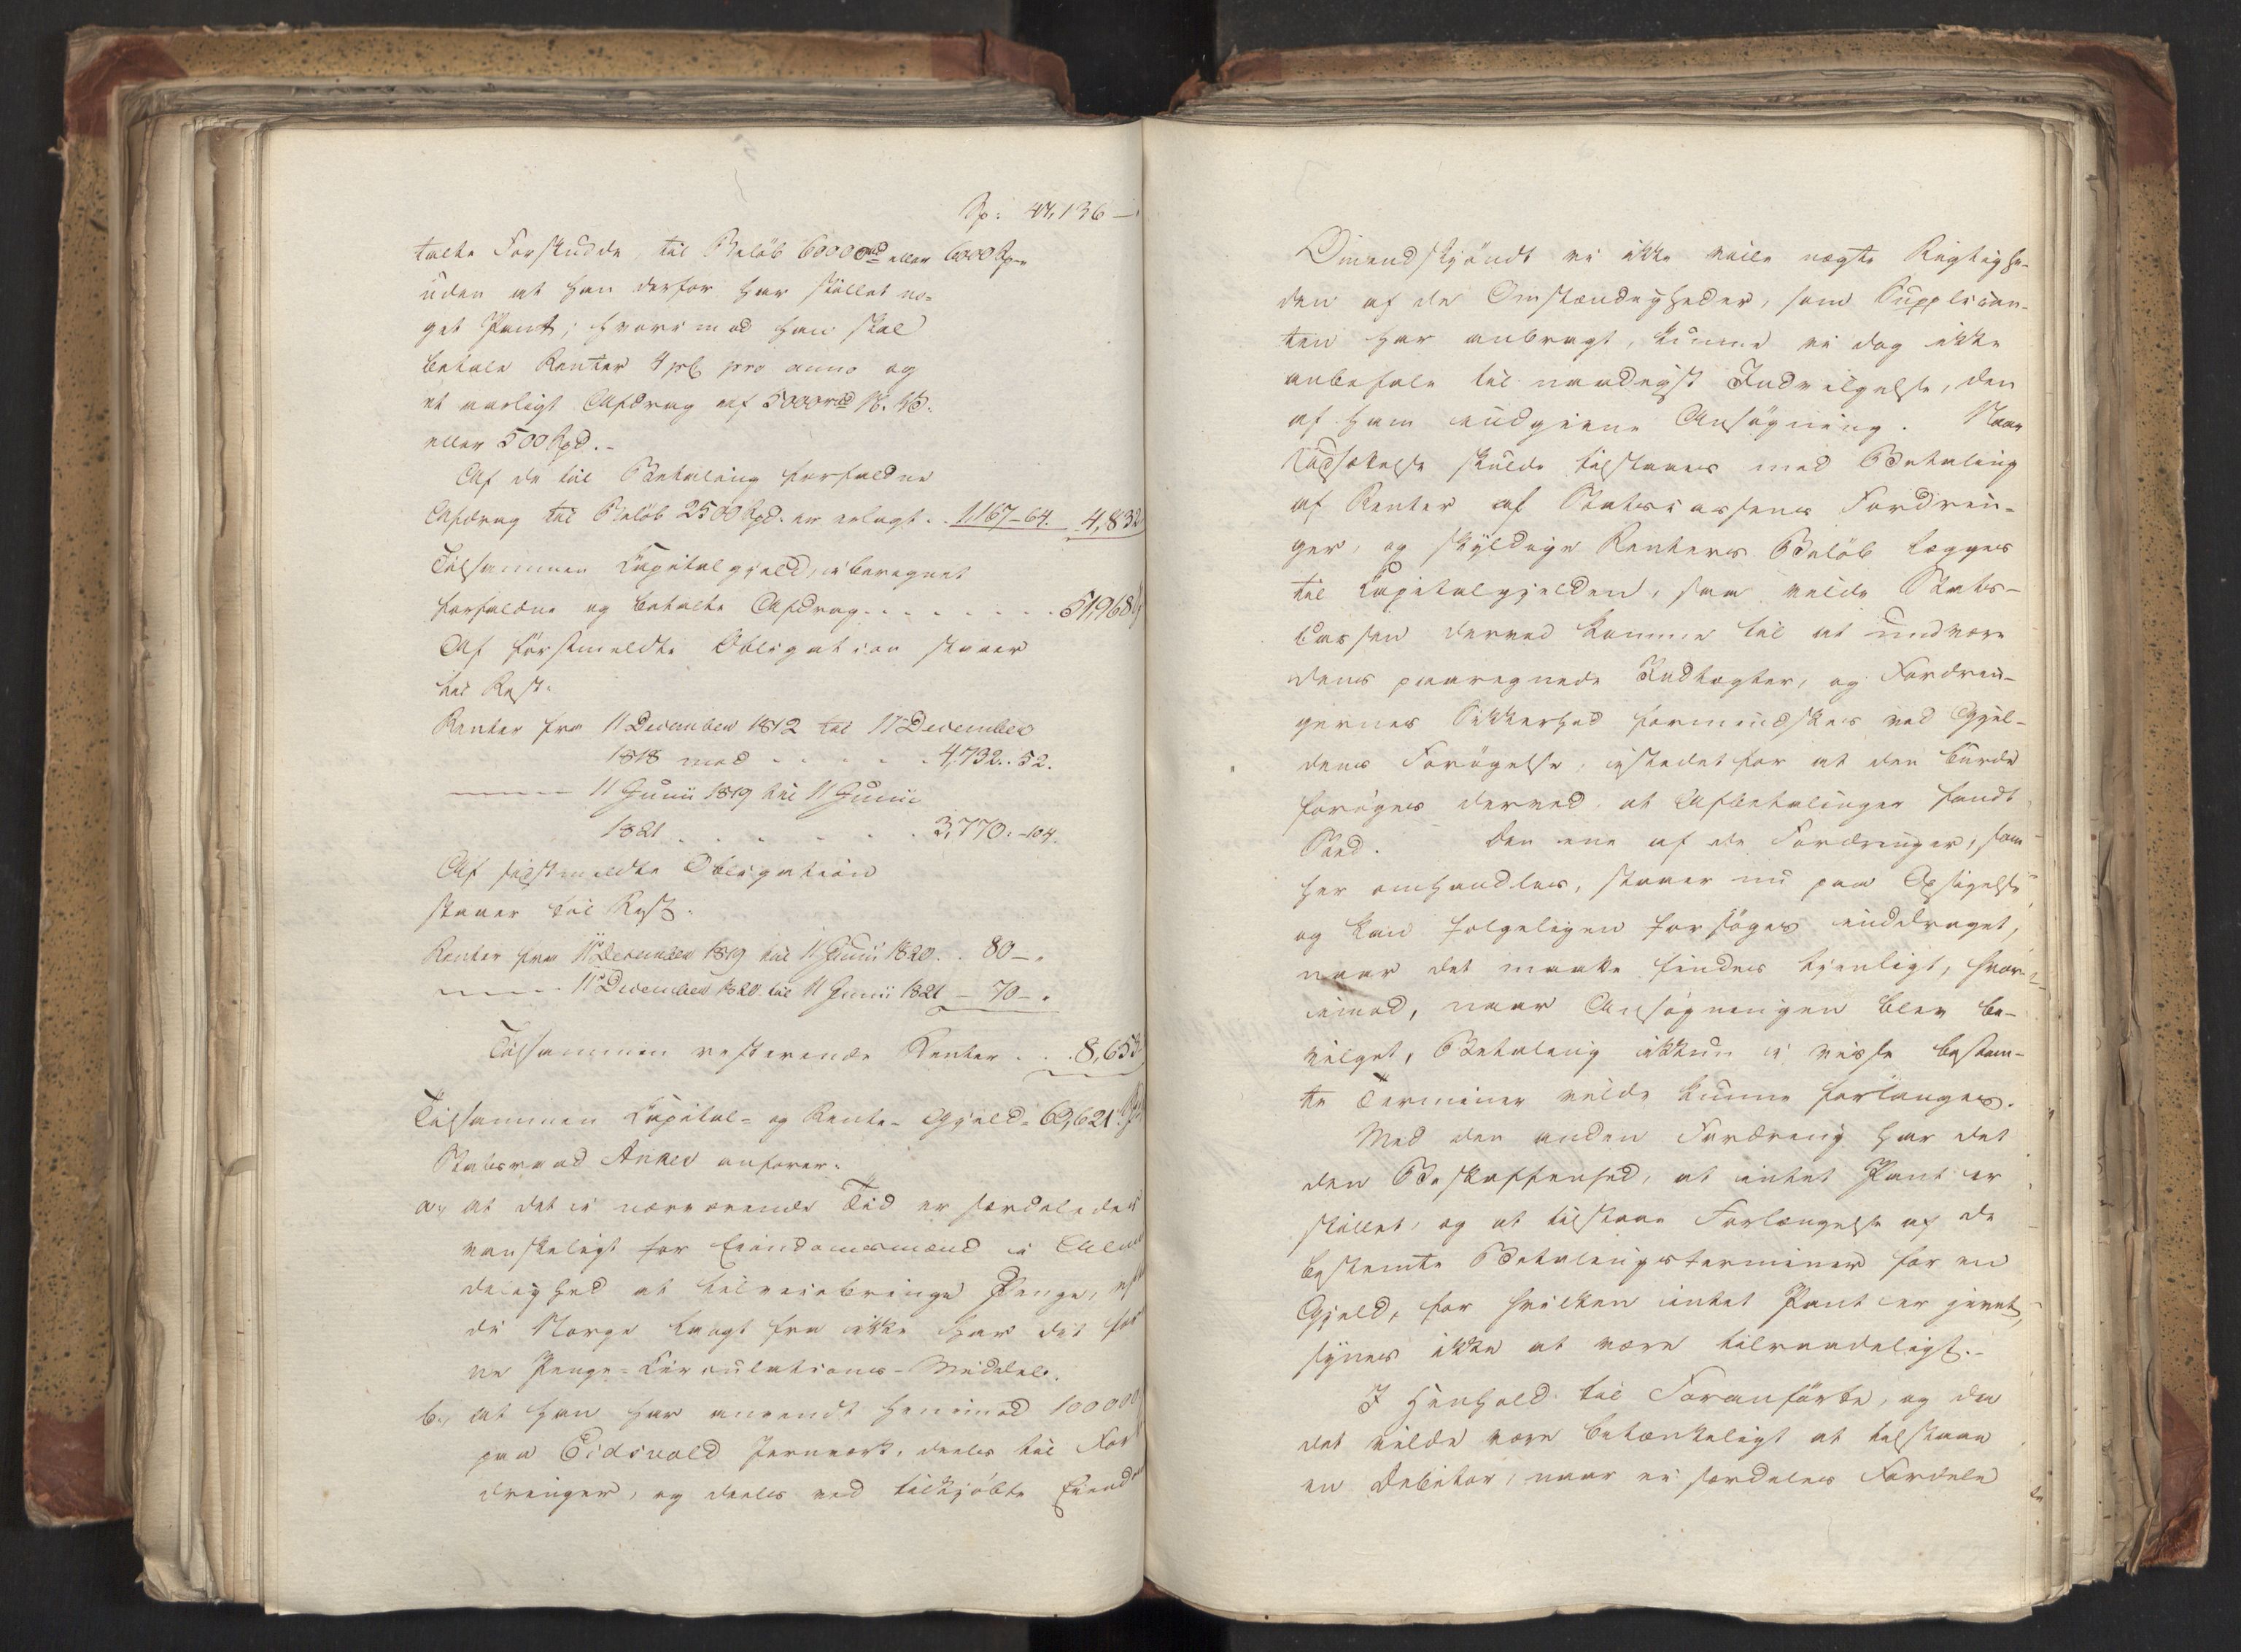 Sp: 47,136 —
talte Forskudde, til Beløb 60000 rd eller 6000 Spd
uden at han derfor har stillet no-
get Pant; hvorimod han skal
betale Renter 4 pC pro anno og
et aarligt Afdrag af 5000 rd N. V.
eller 500 Spd. -
Af de til Betaling forfaldne
Afdrag til Beløb 2500 Spd. er erlagt . . 1,167-64. 4,832
Tilsammen Capitalgjeld, iberegnet
forfaldne og betalte Afdrag . . . . . . . . 51,968
Af førstmeldte Obligation staaer
til Rest:
Renter fra 11 December 1812 til 11 December
1818 med . . . . . 4,732..52.
——— 11 Junii 1819 til 11 Junii
1821 . . . . . . 3,770.-104.
Af sidstmeldte Obligation
staaer til Rest.
Renter fra 11 December 1819 til 11 Junii 1820. . 80 — .
——— 11 December 1820 til 11 Junii 1821 — 70 — .
Tilsammen resterende Renter . . . 8,653
Tilsammen Capital- og Rente-Gjeld- 60,621.
Statsraad Anker anfører:
a., at det i nærværende Tid er særdeles
vanskeligt for Eiendomsmænd i Almin
delighed at tilveiebringe Penge, ef
di Norge langt fra ikke har det for
ne Penge-Circulations-Middel.
b., at han har anvendt henimod 100000
paa Eidsvold Jernværk, deels til For
dringer, og deels ved tilkjøbte Eiend
Omendskjøndt vi ikke ville nægte Rigtighe-
den af de Omstændigheder, som Supplican-
ten har anbragt, kunne vi dog ikke
anbefale til naadigst Indvilgelse, den
af ham indgivne Ansøgning. Naar
Udsættelse skulde tilstaaes med Betaling
af Renter af Statscassens Fordrin-
ger, og skyldige Renters Beløb lægges
til Capitalgjelden, saa vilde Stats-
Cassen derved komme til at undvære
dens paaregnede Indtægter, og Fordrin-
gernes Sikkerhed formindskes ved Gjel-
dens Forøgelse, istedet for at den burde
forøges derved, at Afbetalinger fandt
Sted. Den ene af de Fordringer, som
her omhandles, staaer nu paa Opsigelse
og kan følgeligen forsøges inddraget,
naar det maatte findes tjenligt, hvor-
imod, naar Ansøgningen blev be-
vilget, Betaling ikkun i visse bestem-
te Terminer vilde kunne forlanges.
Med den anden Fordring har det
den Beskaffenhed, at intet Pant er
stillet, og at tilstaae Forlængelse af de
bestemte Betalingsterminer for en
Gjeld, for hvilken intet Pant er givet,
synes ikke at være tilraadeligt. -
I Henhold til Foranførte, og da
det vilde være betænkeligt at tilstaae
en Debitor, naar ei særdeles Fordele